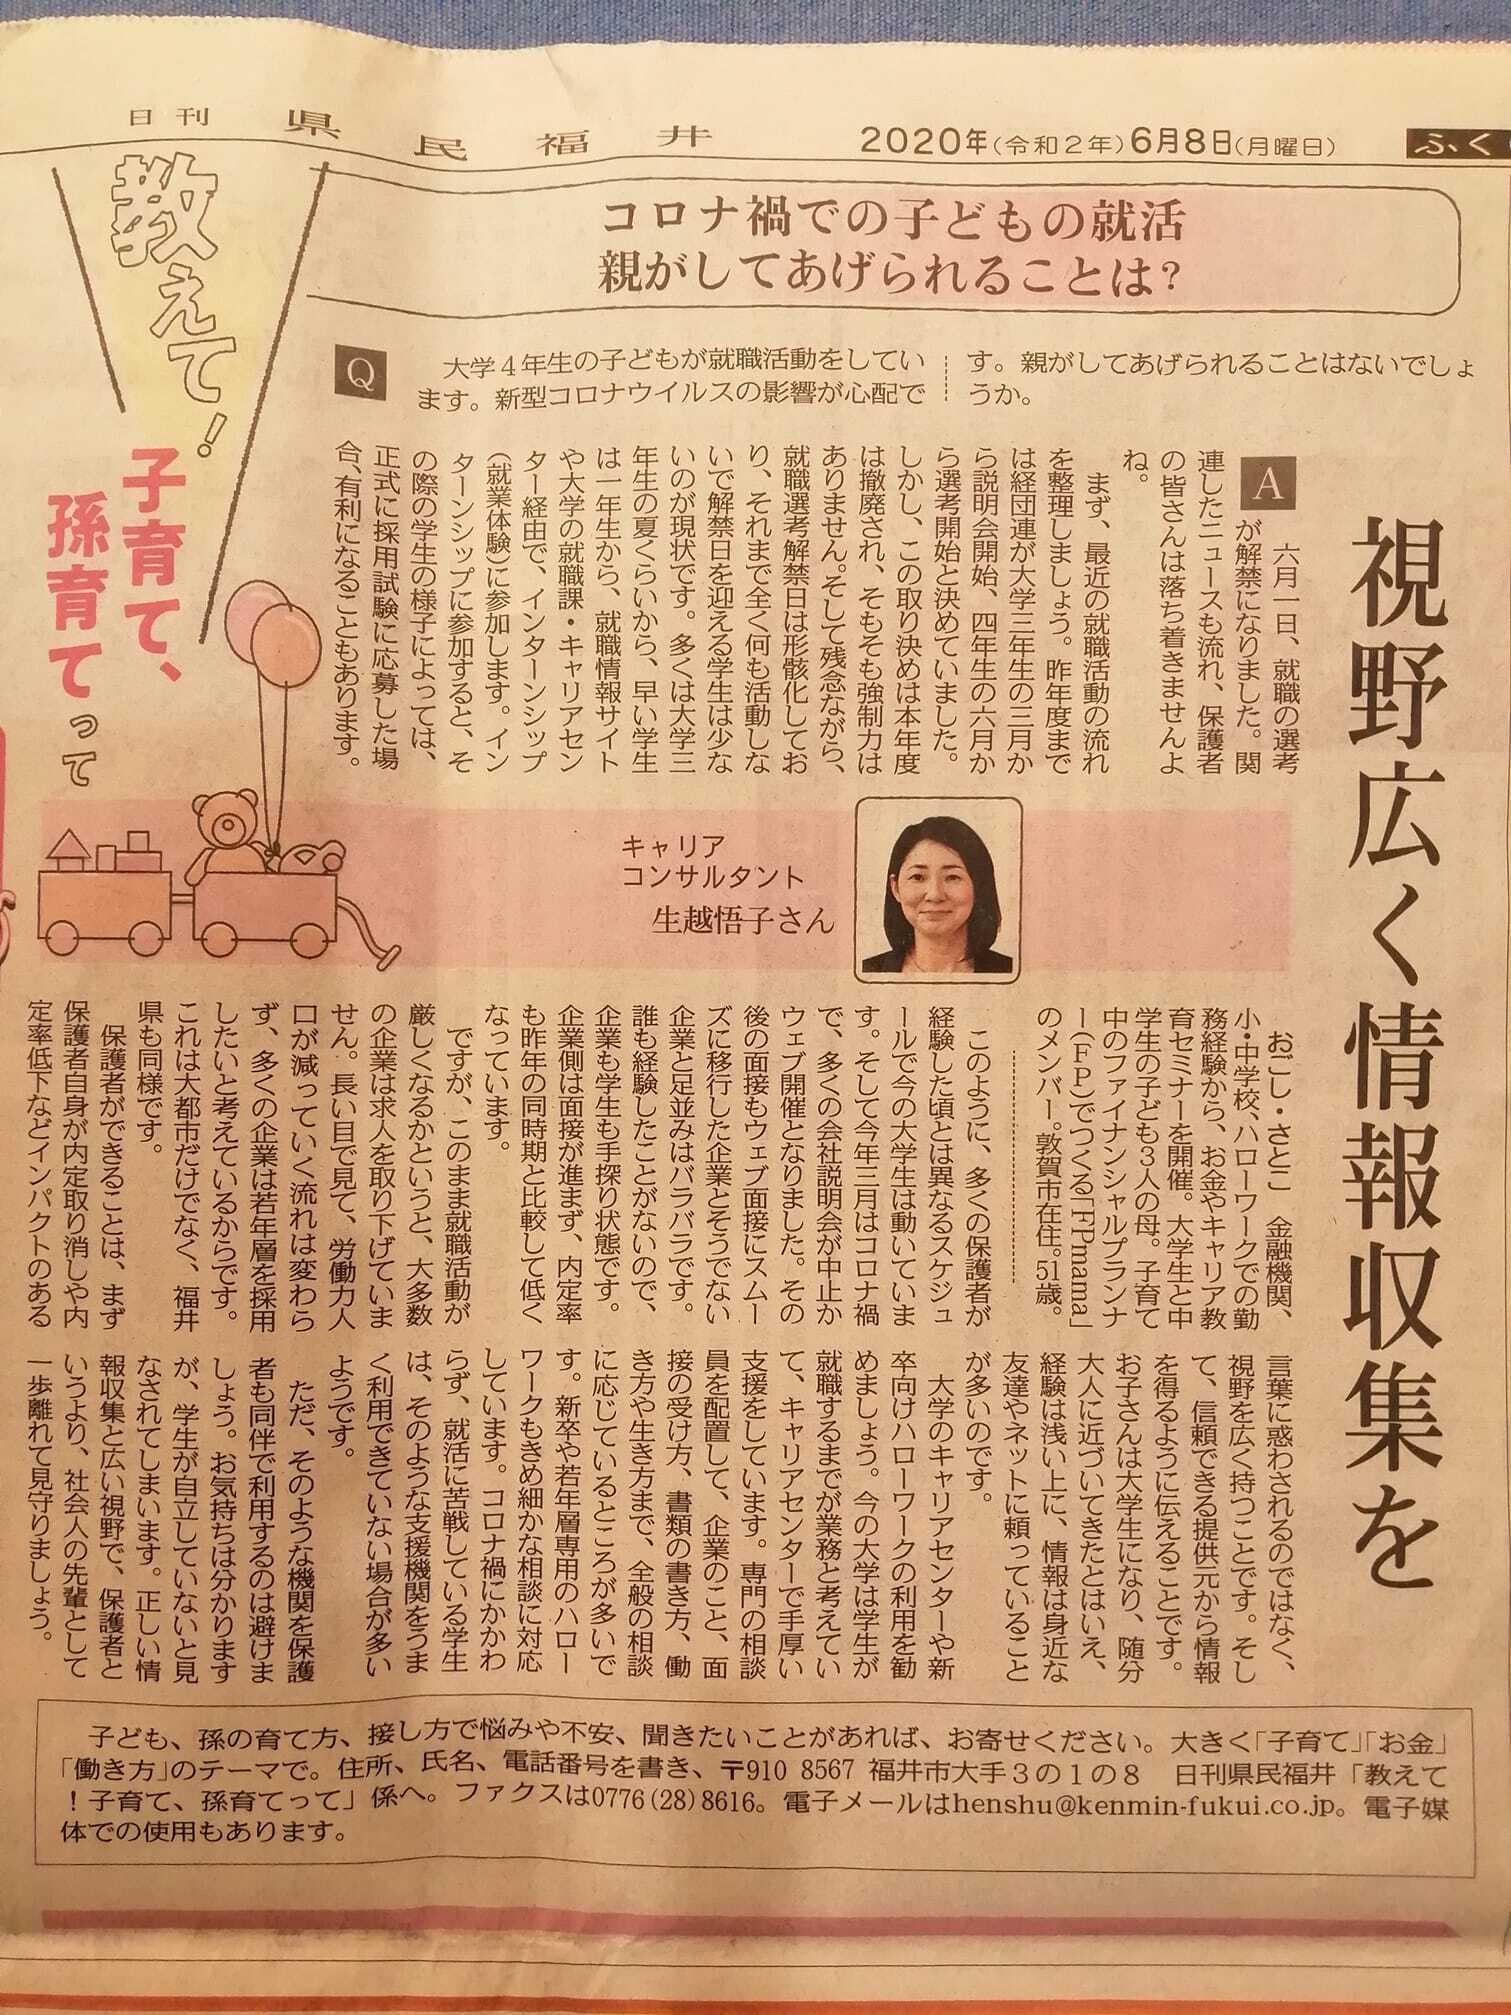 日刊 県民福井 2020年(令和2年)6月8日(月曜日)
ふく
教えて!
子育て、
孫育てって
コロナ禍での子どもの就活
親がしてあげられることは?
Q
大学4年生の子どもが就職活動をしてい
ます。新型コロナウイルスの影響が心配で
す。親がしてあげられることはないでしょ
うか。
視野広く情報収集を
A
六月一日、就職の選考
が解禁になりました。関
連したニュースも流れ、保護者
の皆さんは落ち着きませんよ
ね。
まず、最近の就職活動の流れ
を整理しましょう。昨年度まで
は経団連が大学三年生の三月か
ら説明会開始、四年生の六月か
ら選考開始と決めていました。
しかし、この取り決めは本年度
は撤廃され、そもそも強制力は
ありません。そして残念ながら、
就職選考解禁日は形骸化してお
り、それまで全く何も活動しな
いで解禁日を迎える学生は少な
いのが現状です。多くは大学三
年生の夏くらいから、早い学生
は一年生から、就職情報サイト
や大学の就職課・キャリアセン
ター経由で、インターンシップ
(就業体験)に参加します。イン
ターンシップに参加すると、そ
の際の学生の様子によっては、
正式に採用試験に応募した場
合、有利になることもあります。
キャリア
コンサルタント
生越悟子さん
おごし・さとこ 金融機関、
小・中学校、ハローワークでの勤
務経験から、お金やキャリア教
育セミナーを開催。大学生と中
学生の子ども3人の母。子育て
中のファイナンシャルプランナ
ー(FP)でつくる「FPmama」
のメンバー。敦賀市在住。51歳。
このように、多くの保護者が
経験した頃とは異なるスケジュ
ールで今の大学生は動いていま
す。そして今年三月はコロナ禍
で、多くの会社説明会が中止か
ウェブ開催となりました。その
後の面接もウェブ面接にスムー
ズに移行した企業とそうでない
企業と足並みはバラバラです。
誰も経験したことがないので、
企業も学生も手探り状態です。
企業側は面接が進まず、内定率
も昨年の同時期と比較して低く
なっています。
ですが、このまま就職活動が
厳しくなるかというと、大多数
の企業は求人を取り下げていま
せん。長い目で見て、労働力人
口が減っていく流れは変わら
ず、多くの企業は若年層を採用
したいと考えているからです。
これは大都市だけでなく、福井
県も同様です。
保護者ができることは、まず
保護者自身が内定取り消しや内
定率低下などインパクトのある
言葉に惑わされるのではなく、
視野を広く持つことです。そし
て、信頼できる提供元から情報
を得るように伝えることです。
お子さんは大学生になり、随分
大人に近づいてきたとはいえ、
経験は浅い上に、情報は身近な
友達やネットに頼っていること
が多いのです。
大学のキャリアセンターや新
卒向けハローワークの利用を勧
めましょう。今の大学は学生が
就職するまでが業務と考えてい
て、キャリアセンターで手厚い
支援をしています。専門の相談
員を配置して、企業のこと、面
接の受け方、書類の書き方、働
き方や生き方まで、全般の相談
に応じているところが多いで
す。新卒や若年層専用のハロー
ワークもきめ細かな相談に対応
しています。コロナ禍にかかわ
らず、就活に苦戦している学生
は、そのような支援機関をうま
く利用できていない場合が多い
ようです。
ただ、そのような機関を保護
者も同伴で利用するのは避けま
しょう。お気持ちは分かります
が、学生が自立していないと見
なされてしまいます。正しい情
報収集と広い視野で、保護者と
いうより、社会人の先輩として
一歩離れて見守りましょう。
子ども、孫の育て方、接し方で悩みや不安、聞きたいことがあれば、お寄せください。大きく「子育て」「お金」
「働き方」のテーマで。住所、氏名、電話番号を書き、〒910 8567 福井市大手3の1の8 日刊県民福井「教えて
!子育て、孫育てって」係へ。ファクスは0776(28)8616。電子メールはhenshu@kenmin-fukui.co.jp。電子媒
体での使用もあります。